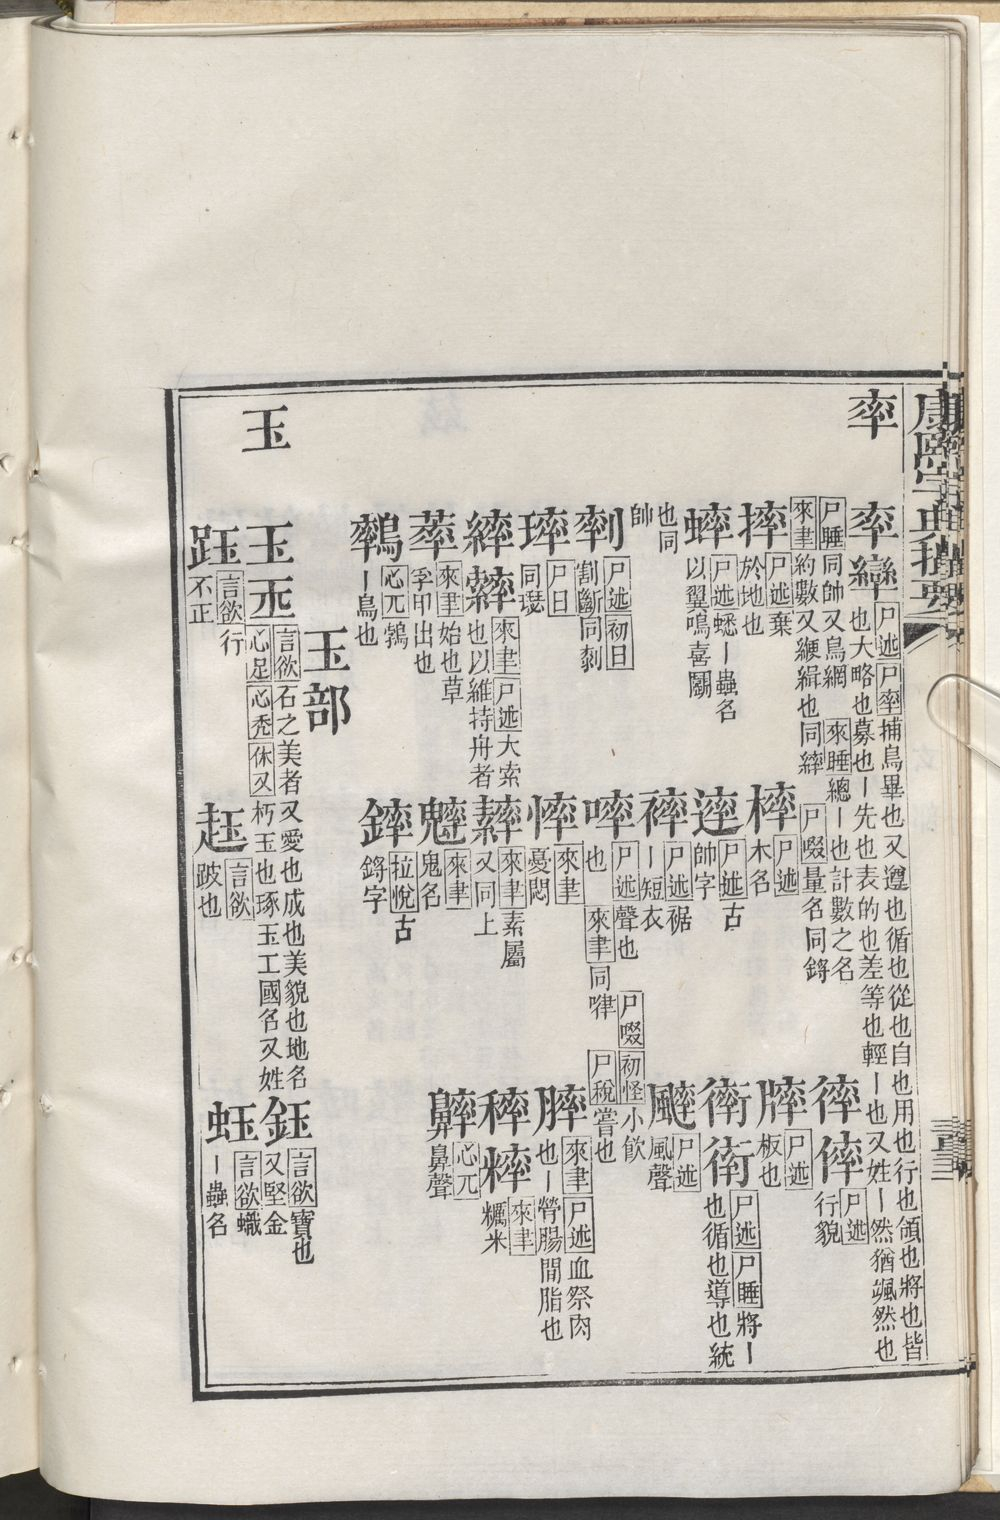 康熙字典撮要
率
率䜌 尸述 尸率 捕鳥畢也又遵也循也從也自也用也行也領也將也皆
也大略也募也〡先也表的也差等也輕〡也又姓〡然猶颯然也
尸睡 同帥又鳥網 來睡 總〡也計數之名
來聿 約數又綆緝也同繂 尸啜 量名同鋝
摔 尸述 棄
於地也
榫 尸述
木名
䢦 尸述
行貌
蟀 尸述 蟋〡蟲名
以翼鳴喜鬭
達 尸述 古
帥字
牌 尸述
板也
衛 衛 尸述 尸睡 將〡
也循也導也統
帥
也同
尸述 裾
〡短衣
颰 尸述
風聲
剺 尸述 初日
割斷同剺
啐 尸述 聲也 尸啜 初怪 小飲
也 來聿 同嘽 尸稅 嘗也
璱 尸日
同瑟
來聿
憂悶
膟 來聿 尸述 血祭肉
也〡膋腸間脂也
繂 來聿 尸述 大索
也以維持舟者
來聿 素屬
又同上
來聿
糲米
來聿 始也草
孚甲出也
來聿
鬼名
心兀
鼻聲
心兀 鶉
〡鳥也
拉悅 古
鋝字
玉部
玉
玉 言欲 石之美者又愛也成也美貌也地名
心足 心禿 休又 朽玉也琢玉工國名又姓
鈺 言欲 寶也
又堅金
言欲 行
不正
言欲
跛也
言欲 蠘
〡蟲名